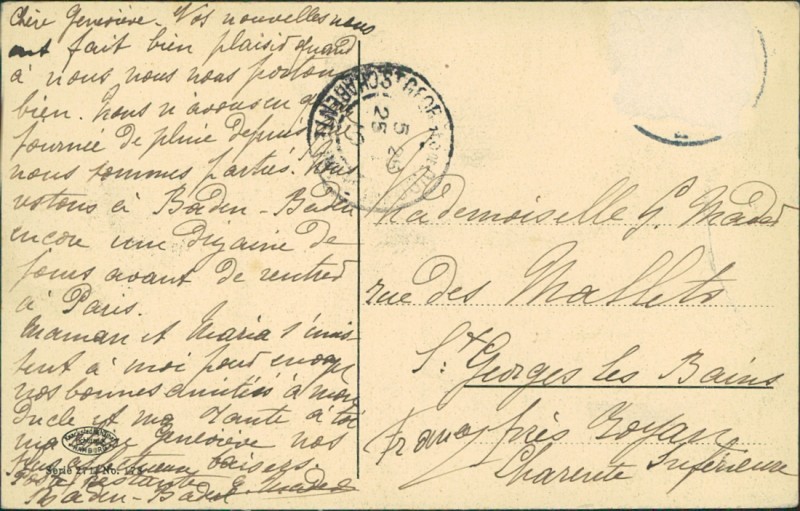 Chère Geneviève. Vos nouvelles nous
ont fait bien plaisir quand
à nous nous nous portons
bien. Nous n'avons eu
journée de pluie depuis
nous sommes partis. Nous
restons à Baden-Baden
encore une dizaine de
jours avant de rentrer
à Paris.
Maman et Maria s'unis
sent à moi pour envoyer
nos bonnes amitiés à mon
Oncle et ma Tante à toi
ma Geneviève nos
plus baisers.
Poste restante G. Mader
Baden-Baden
Serie 271 No.
ST GEOR
CHARENTE
5
25
Mademoiselle G. Mader
rue des Mallets
St. Georges les Bains
près Royan
Charente Inférieure
France